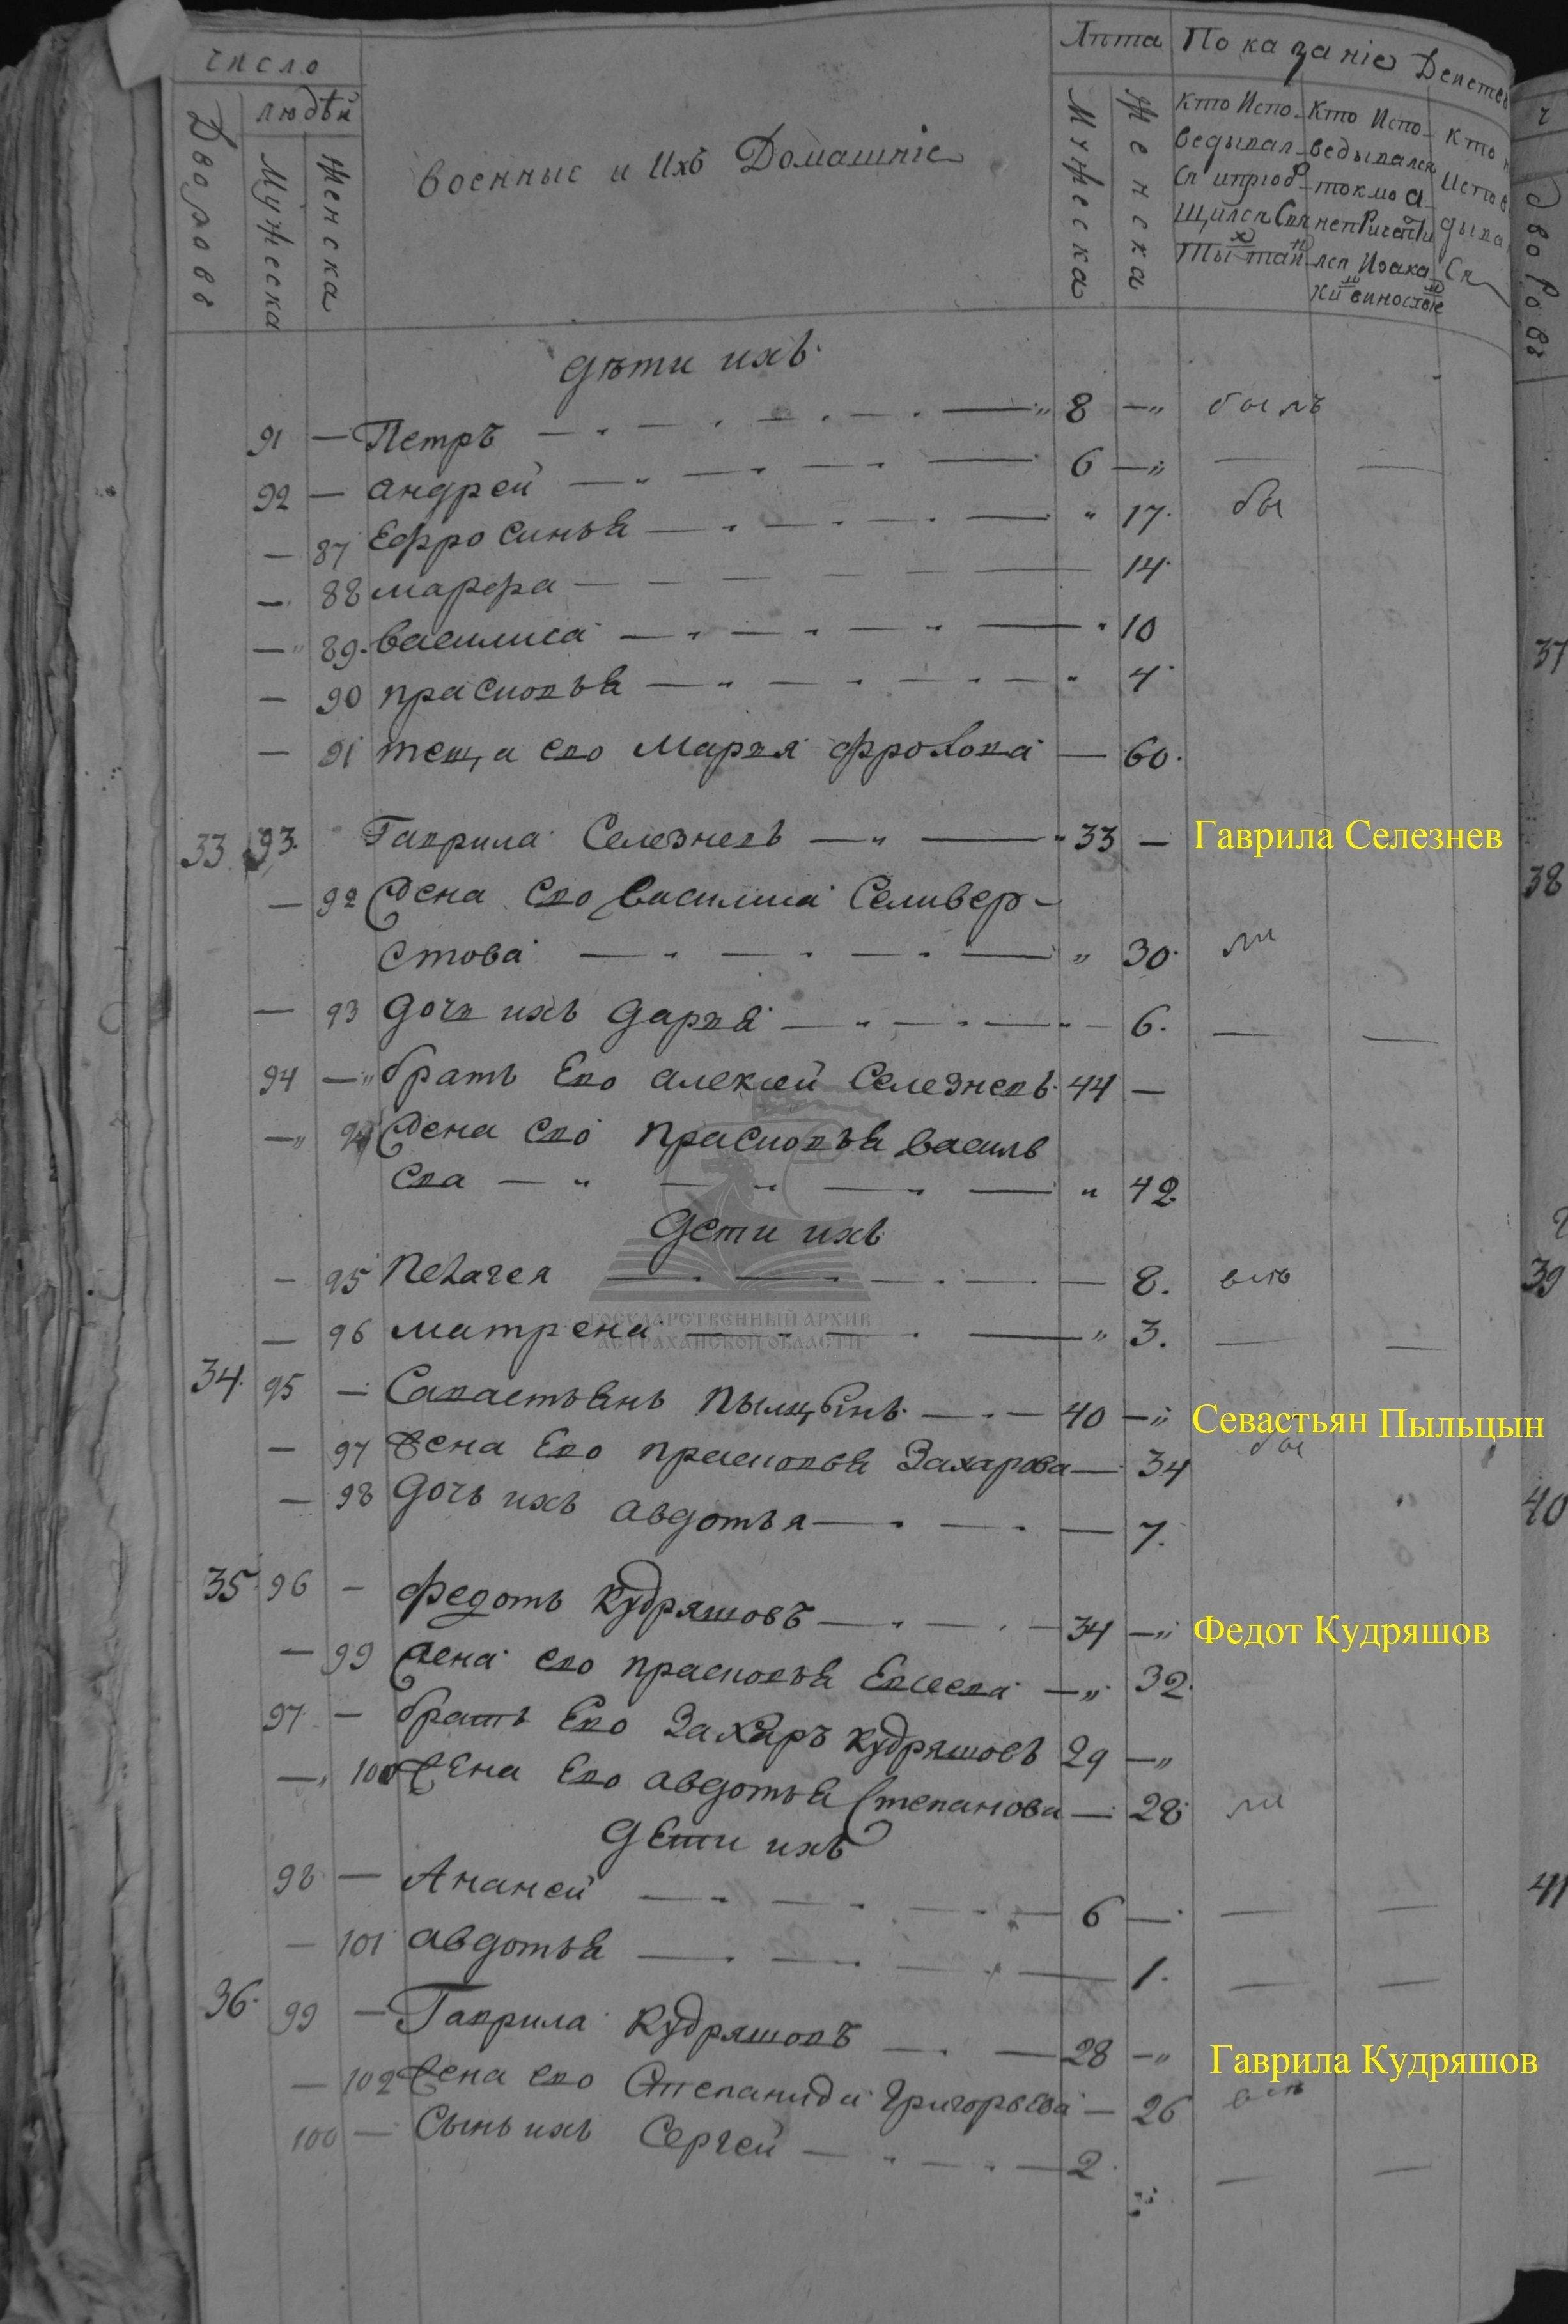 число
людѣй
Дворовъ
Мужеска
Женска
военные и Ихъ Домашніе
Лѣта
Мужеска
Женска
Показаніе Действ
кто Испо-
ведывал-
ся ипріоб-
щился Свя
тыхъ таин
Кто Испо-
ведывался
токмо а
непричасти
лся Изака
кихъ виносте
кто н
Испов
дыва
ся
дворовъ
дѣти ихъ
91 — Петръ — 8 —„ былъ
92 — андрей — 6 —„
— 87 Ефросинья — „ 17. бы
— 88 марфа — 14.
— 89. василиса — 10
— 90 прасковья — 4
— 91 теща ево Марвя фролова — 60.
33 93. Гаврила Селезневъ — 33 — Гаврила Селезнев
— 92 Жена Ево василиса Селивер-
стова — „ 30. ли
— 93 дочь ихъ дарья — 6.
94 — братъ Ево алексей Селезневъ. 44 —
—„ 94 Жена ево прасковья василь
ева — „ 42.
Дети ихъ
— 95 Пелагея — 8. всѣ
— 96 матрена — „ 3.
ГОСУДАРСТВЕННЫЙ АРХИВ
АСТРАХАНСКОЙ ОБЛАСТИ
34. 95 — Савастьянъ пылцынъ. — 40 —„ Севастьян Пыльцын
— 97 Жена Ево прасковья Захарова — 34 бы
— 98 Дочь ихъ авдотья — 7.
35. 96 — федотъ кудряшовъ — 34 —„ Федот Кудряшов
— 99 Жена ево прасковья Евсева —„ 32.
97. — братъ Ево Захаръ кудряшовъ 29 —„
—„ 100 Жена Ево авдотья Степанова — 28. ли
Дети ихъ
98 — Ананей — 6 —
— 101 авдотья — 1.
36. 99 — Гаврила кудряшовъ — 28 —„ Гаврила Кудряшов
— 102 Жена ево Степанида Григорьева — 26 всѣ
100 — Сынъ ихъ Сергей — 2
37
38
39
40
41